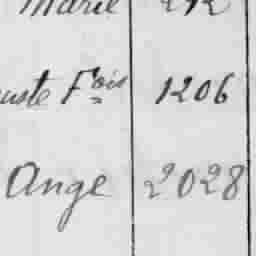 Marie 212
uste Fois 1206
Ange 2028